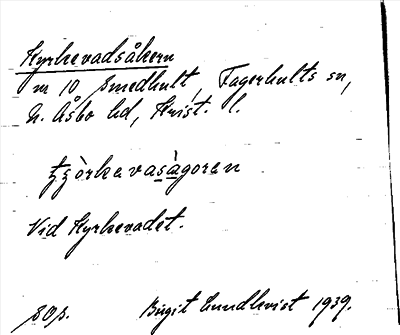 Kyrkevadsåkern
nr 10 Smedhult, Fagerhults sn,
N. Åsbo hd, Krist. l.
tʒòrkavasàgoren
Vid Kyrkevadet.
Birgit Lundkvist 1939.